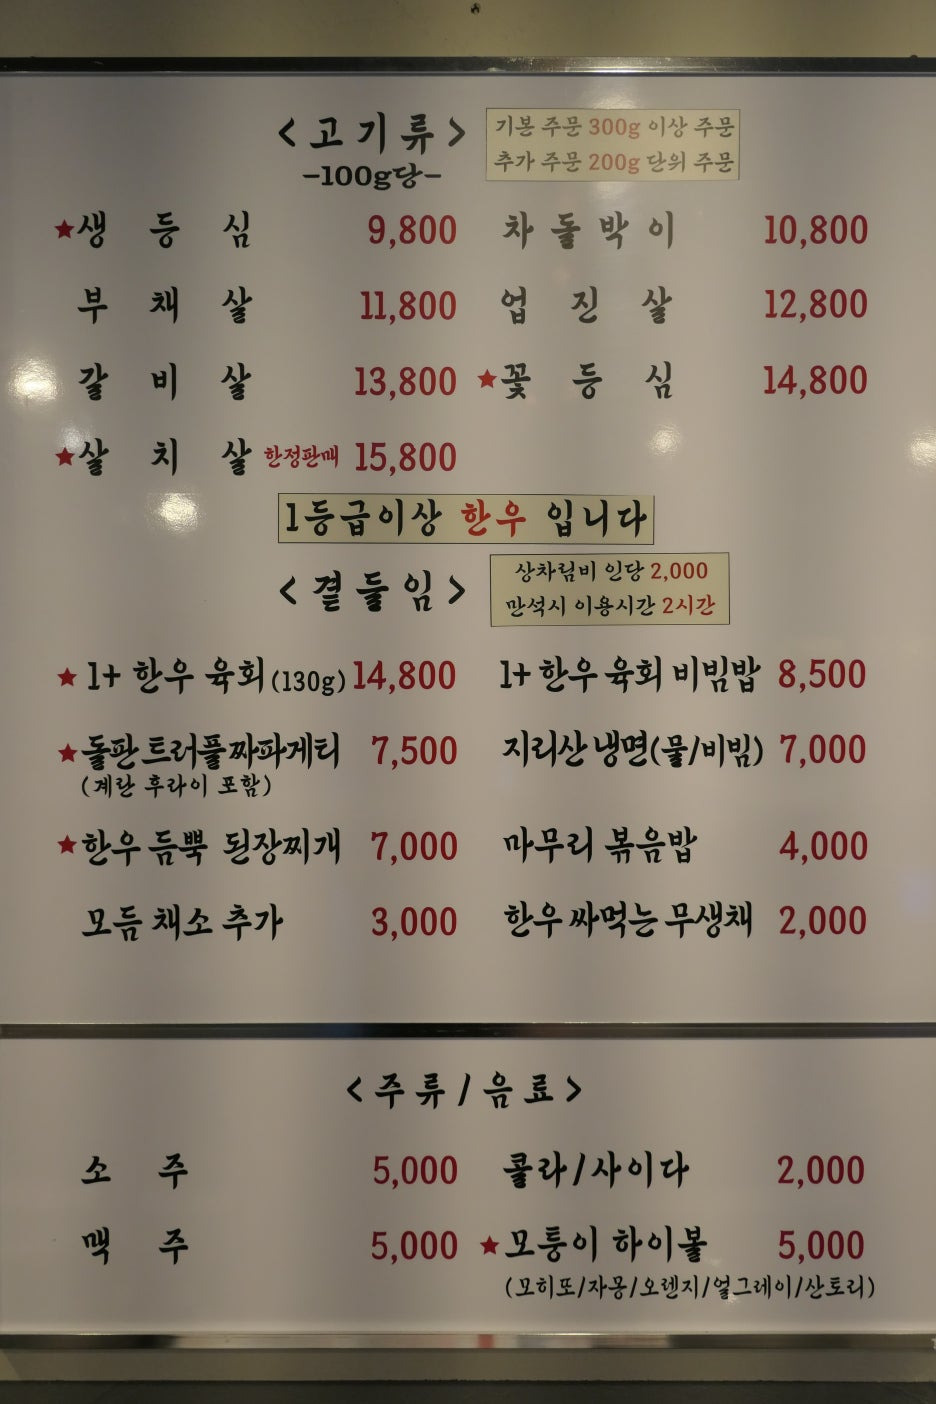 <고기류>
-100g당-
기본 주문 300g 이상 주문
추가 주문 200g 단위 주문
★생등심 9,800 차돌박이 10,800
부채살 11,800 업진살 12,800
갈비살 13,800 ★꽃등심 14,800
★살치살 한정판매 15,800
1등급이상 한우 입니다
<곁들임>
상차림비 인당 2,000
만석시 이용시간 2시간
★1+ 한우 육회(130g) 14,800 1+ 한우 육회 비빔밥 8,500
★돌판 트러플 짜파게티 7,500 지리산 냉면(물/비빔) 7,000
(계란 후라이 포함)
★한우 듬뿍 된장찌개 7,000 마무리 볶음밥 4,000
모듬 채소 추가 3,000 한우 싸먹는 무생채 2,000
<주류/음료>
소주 5,000 콜라/사이다 2,000
맥주 5,000 ★모퉁이 하이볼 5,000
(모히또/자몽/오렌지/얼그레이/산토리)